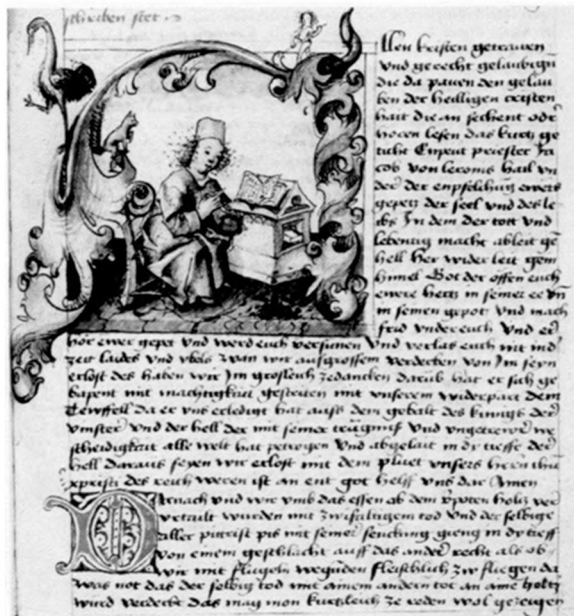 schriben stet
llen kristen getrauen
vnd gerecht gelaubign
die da pauen den gelau
ben der heiligen cristen
hait die an sechent odr
horen lesen das kurtz ge
ticht Enpeut priester Ja
cob von heil vn
der der enpfelhung ewers
gepetz der seel vnd des le
ibs In dem der tott vnd
lebentig macht ableit gen
hell her wider leit gem
himel Got der offen euch
ewere hertz in seiner ee vn
in seinen gepot vnd mach
frid vnder euch vnd er
hor ewer gepet vnd werd euch versunen vnd verlas euch nit in d
zeit laides vnd vbels wan wir auss grossem verderben von Im seyn
erlost des haben wir Im grosleich ze dancken darub hat er sich ge
bapent mit machtigkait gestriten mit vnserem widerpart dem
Tewffell da er vns erledigt hat auss dem gebalt des kunigs der
vinster vnd der hell der mit seiner vnd vngetrewer we
schaidigkait alle welt hat petrogen vnd abgelait in dy tieffe der
hell daraus seyen wir erlost mit dem pluet vnsers hern ihu
xpristi des reich weren ist an ent got helff vns dar Amen
Arnach vnd wir vmb das essen ab dem holtz ver
vrtailt wurden mit zwifaltigem tod vnd der selbige
aller pittrist pis mit seiner senckung gieng in dy tieff
von einem geschlacht auff das ander recht als ob
wir mit flugeln fleischlich zw fliegen da
was not das der selbig tod mit ainem andern tot an aine holtz
wird verderbt das mag mon kurtzleich ze reden wol